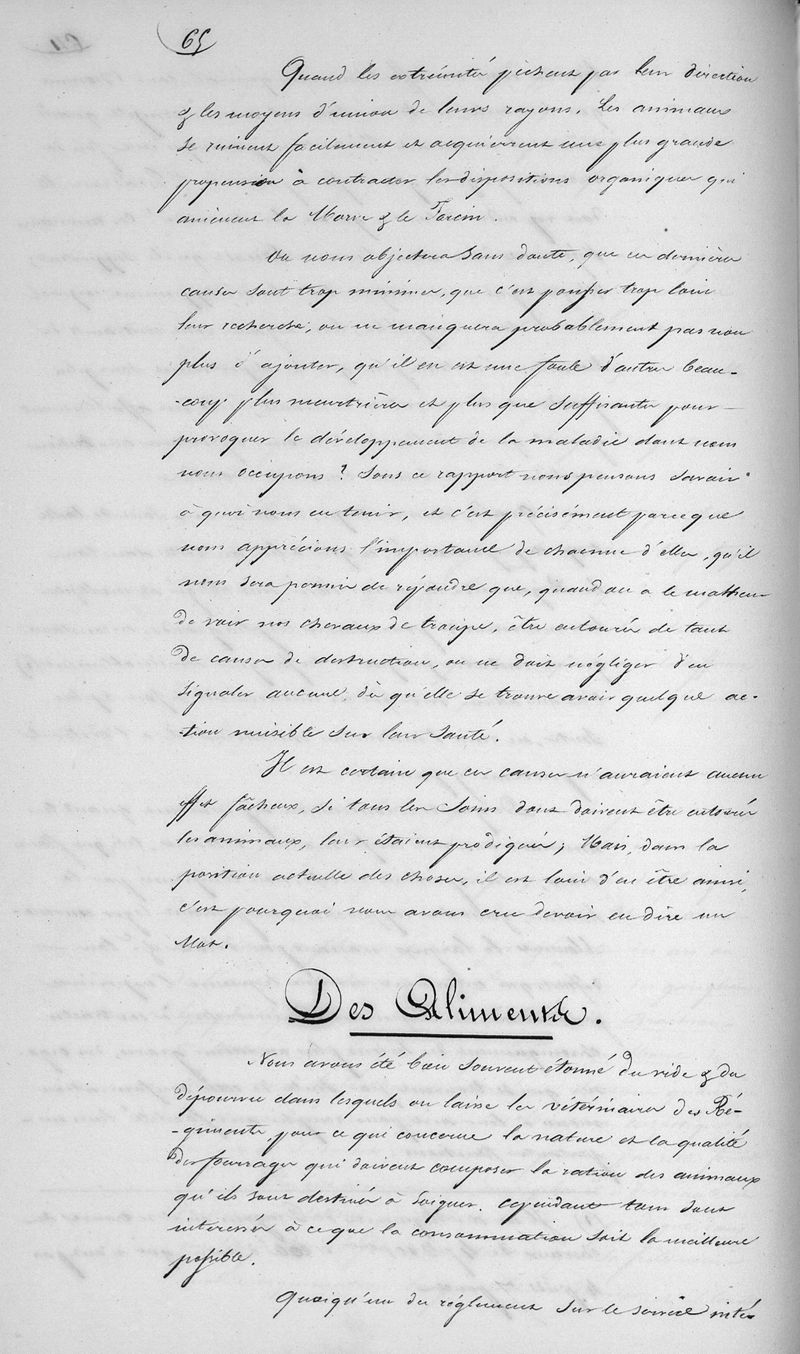 65
Quand les extrémités pèchent par leur direction
& les moyens d'union de leurs rayons. Les animaux
se ruinent facilement et acquièrent une plus grande
propension à contracter les dispositions organiques qui
amènent la Morve & le Farcin.
On nous objectera sans doute, que ces dernières
causes sont trop minimes, que c'est pousser trop loin
leur recherche; on ne manquera probablement pas non
plus d'ajouter, qu'il en est une foule d'autres beau-
-coup plus meurtrières et plus que suffisantes pour
provoquer le développement de la maladie dont nous
nous occupons? Sous ce rapport nous pensons savoir
à quoi nous en tenir, et c'est précisément parce que
nous apprécions l'importance de chacune d'elles, qu'il
nous sera permis de répondre que, quand on a le malheur
de voir nos chevaux de troupe, être entourés de tant
de causes de destruction, on ne doit négliger d'en
signaler aucune, dès qu'elle se trouve avoir quelque ac-
-tion nuisible sur leur santé.
Il est certain que ces causes n'auraient aucun
effet fâcheux, si tous les soins dont doivent être entourés
les animaux, leur étaient prodigués; Mais, dans la
position actuelle des choses, il est loin d'en être ainsi,
c'est pourquoi nous avons cru devoir en dire un
Mot.
Des Aliments.
Nous avons été bien souvent étonné du vide & du
dépourvu dans lesquels on laisse les vétérinaires des Ré-
-giments, pour ce qui concerne la nature et la qualité
des fourrages qui doivent composer la ration des animaux
qu'ils sont destinés à soigner. Cependant tous sont
intéressés à ce que la consommation soit la meilleure
possible.
Quoiqu'un du réglement sur le service inté